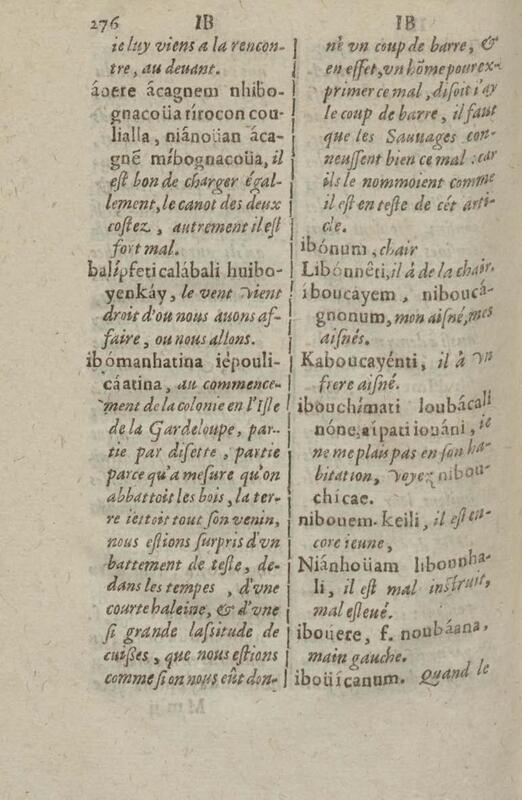 276 IB
ie luy viens a la rencon-
tre, au deuant.
áoere ácagnem nhibo-
gnacoüa tírocon cou-
lialla, niánoüan áca-
gnē míbognacoüa, il
est bon de charger égal-
lement, le canot des deux
costez, autrement il est
fort mal.
balípfeti calábali huibo-
yenkáy, le vent vient
droit d'ou nous auons af-
faire, ou nous allons.
ibómanhatina iépouli-
cáatina, au commence-
ment de la colonie en l'Isle
de la Gardeloupe, par-
tie par disette, partie
parce qu'a mesure qu'on
abbattoit les bois, la ter-
re iettoit tout son venin,
nous estions surpris d'vn
battement de teste, de-
dans les tempes, d'vne
courte haleine, & d'vne
si grande lassitude de
cuißes, que nous estions
comme si on nous eût don-
IB
né vn coup de barre, &
en effet, vn hōme pour ex-
primer ce mal, disoit i'ay
le coup de barre, il faut
que les Sauuages con-
neussent bien ce mal : car
ils le nommoient comme
il est en teste de cét arti-
cle.
ibónum, chair
Libónnêti, il á de la chair.
íboucáyem, niboucá-
gnonum, mon aisné, mes
aisnés.
Kaboucayénti, il á vn
frere aisné.
ibouchímati loubácali
nóne, aípati iouáni, ie
ne me plais pas en son ha-
bitation, voyez nibou-
chicae.
nibouem-keili, il est en-
core ieune,
Niánhoüam libounha-
li, il est mal instruit,
mal esleué.
ibouere, f. noubáana,
main gauche.
iboüícanum. Quand le